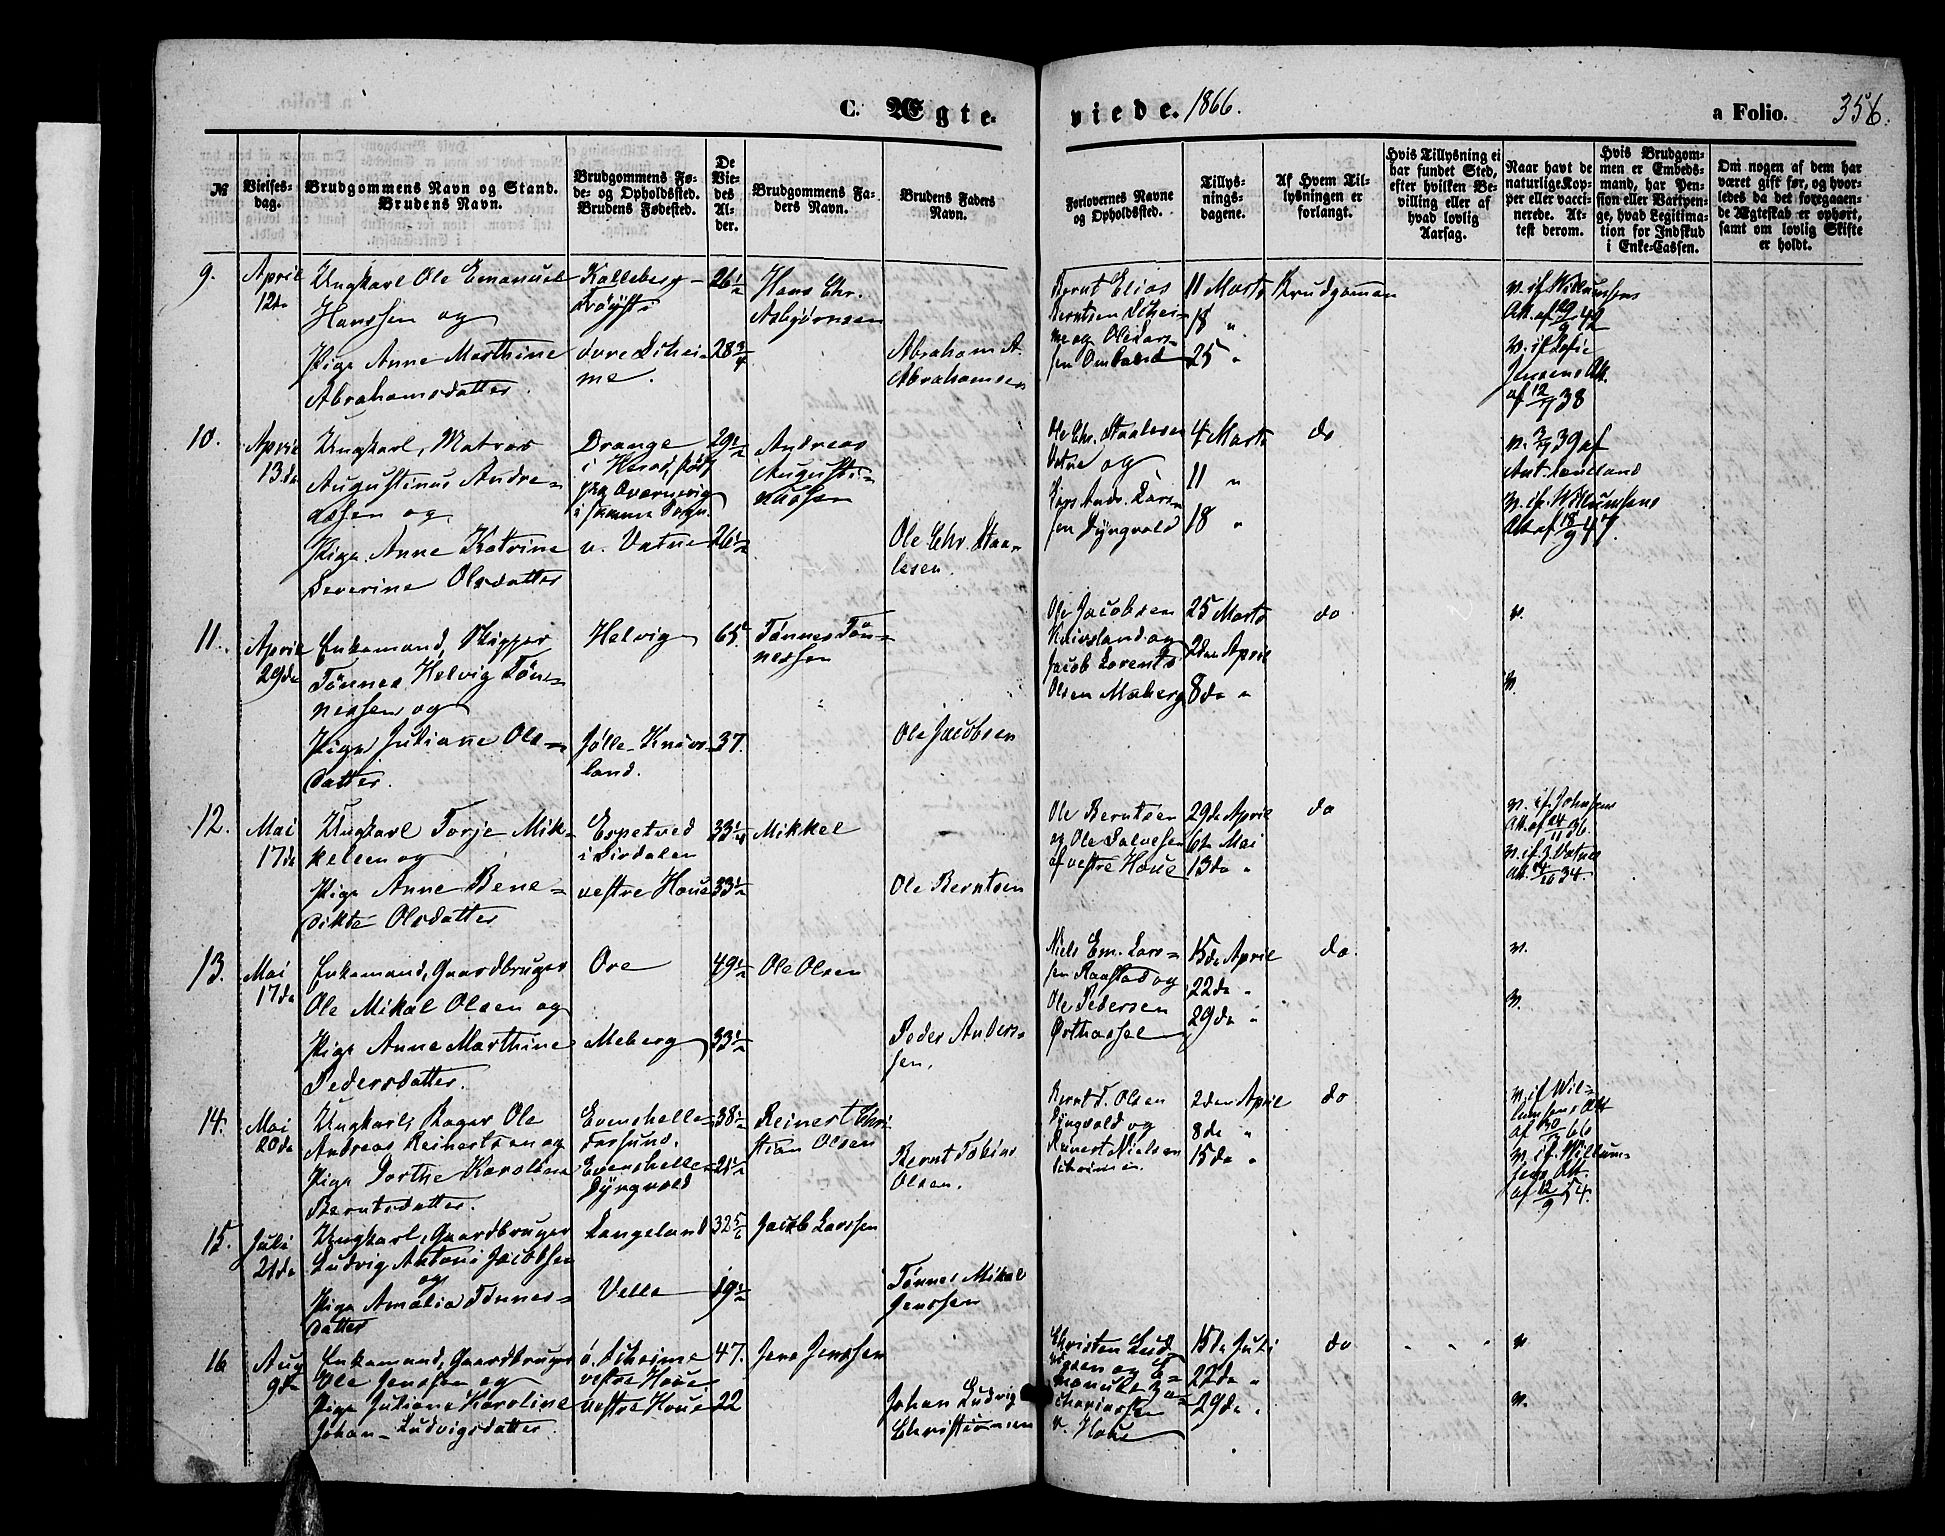 C. Ægte
viede. 1866.
a Folio. 356.
№
Vielses-
dag.
Brudgommens Navn og Stand.
Brudens Navn.
Brudgommens Fø-
de- og Opholdssted.
Brudens Fødested.
De
Vie-
des
Al-
der.
Brudgommens Fa-
ders Navn.
Brudens Faders
Navn.
Forlovernes Navne
og Opholdssted.
Tillys-
nings-
dagene.
Af Hvem Til-
lysningen er
forlangt.
Hvis Tillysning ei
har fundet Sted,
efter hvilken Be-
villing eller af
hvad lovlig
Aarsag.
Naar havt de
naturlige Kop-
per eller vacci-
nerede. At-
test derom.
Hvis Brudgom-
men er Embeds-
mand, har Pen-
sion eller Vartpen-
ge, hvad Legitima-
tion for Indskud
i Enke-Cassen.
Om nogen af dem har
været gift før, og hvor-
ledes da det foregaaen-
de Ægteskab er ophørt,
samt om lovlig Skifte
er holdt.
9.
April
12te
Ungkarl Ole Emanuel
Hanssen og
Pige Anne Marthine
Abrahamsdatter.
Kalleberg
øvre Schei-
me.
26 1/2
28 3/4
Hans Chr.
Asbjørnsen
Abraham A.
Abrahamsen
Bernt Elias
Berntsen Schei-
me og Ole Lar-
sen
11 Marts
18 "
25 "
Brudgommen
v. if. Willumsens
Att. af 19/9 42
v. if. Sofie
Jensens Att.
af 12/7 38
10.
April
13de
Ungkarl, Matros
Augustinus Andre-
assen og
Pige Anne Katrine
Severine Olsdatter
Drange
i Herad
i samme Sogn.
v. Vatne
29 1/2
26 1/2
Andreas
Augusti-
nussen
Ole Chr. Staa-
lesen.
Ole Chr. Staalesen
Vatne og
Lars Andr. Lars-
sen Dyngvold
4 Marts
11 "
18 "
do
v. 3/7 39 af
v. if. Willumsens
Att. af 18/9 47.
11.
April
29de
Enkemand, Skipper
Tønnes Helvig Tøn-
nessen og
Pige Juliane Ols-
datter.
Helvig
Jølle-Knivs-
land.
65
37.
Tønnes Tøn-
nessen
Ole Jacobsen
Ole Jacobsen
Knivsland og
Jacob Lorents
Olsen Maberg
25 Marts
2den April
8de "
do
v.
v.
12.
Mai
17de
Ungkarl Torje Mik-
kelsen og
Pige Anne Bene-
dikte Olsdatter
Espetved
i Sirdalen
vestre Haue
33 1/4
33 1/2
Mikkel
Ole Berntsen
Ole Berntsen
og Ole Salvesen
af vestre Haue
29de April
6te Mai
13de "
do
v. if. Johnsens
Att. af 24/11 36.
v. if. J. Vatnes
Att. 14/10 34.
13.
Mai
17de
Enkemand, Gaardbruger
Ole Mikal Olsen og
Pige Anne Marthine
Pedersdatter.
Ore
Meberg
49 1/2
33 1/2
Ole Olsen
Peder Anders-
sen.
Niels Em. Lars-
sen Raastad og
Ole Pedersen
Østhassel
15de April
22de "
29de "
do.
v.
v.
14.
Mai
20de
Ungkarl, Bager Ole
Andreas Reinertsen og
Pige Dorthe Karoline
Berntsdatter.
Evenshelle-
Farsund.
Evenshelle-
Dyngvold
38 1/2
21 1/2
Reinert Chri-
stian Olsen
Bernt Tobias
Olsen.
Bernt T. Olsen
Dyngvold og
Reinert Nielsen
2den April
8de "
15de "
do
v. if. Wil-
lumsens Att
af 30/4 66
v. if. Willum-
sens Att.
af 12/9 54.
15.
Juli
21de
Ungkarl, Gaardbruger
Ludvig Antoni Jacobsen
og
Pige Amalia Tønnes-
datter
Langeland
Velle
32 5/6
19 1/2
Jacob Larssen
Tønnes Mikal
Jenssen
16
Aug
9de
Enkemand, Gaardbruger
Ole Jenssen og
Pige Juliane Karoline
Johan-Ludvigsdatter.
ø. Scheime
vestre Haue
vestre Haue
47.
22
Jens Jenssen
Johan Ludvig
Christiansen
Christen Lud-
vigsen og E-
manuel Za-
chariassen
v. Haue
15de Juli
22de "
29de "
do
v
v.